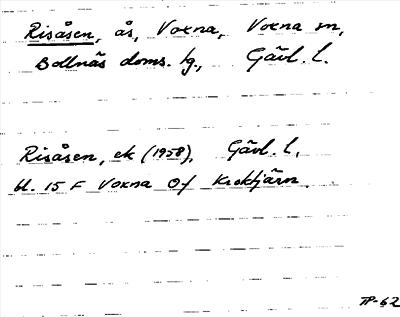 Risåsen, ås, Voxna, Voxna sn,
Bollnäs doms. lg., Gävl. l.
Risåsen, ek (1958), Gävl. l.
bl. 15 F Voxna Of Kroktjärn.
TP-62